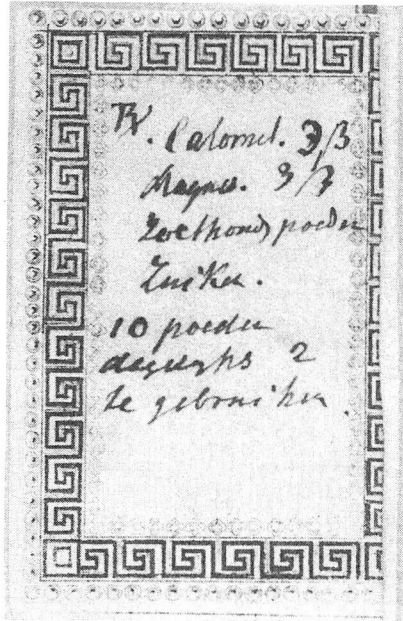 ℞. Calomel.
Magnes.
Zoethouds poeder
Zuiker.
10 poeder
dagelyks 2
te gebruiken.